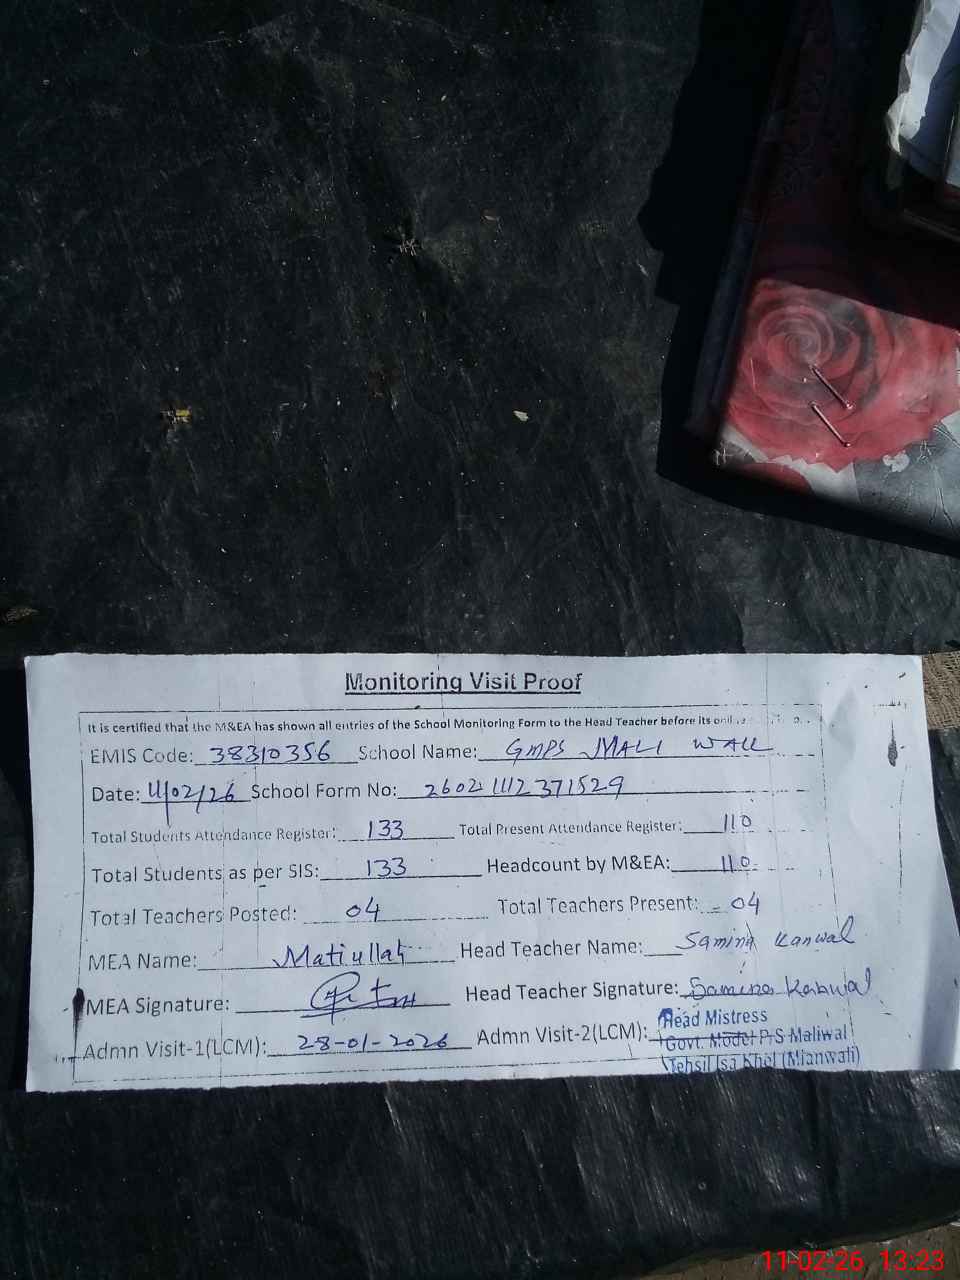 Monitoring Visit Proof
It is certified that the M&EA has shown all entries of the School Monitoring Form to the Head Teacher before its
EMIS Code: 38310356 School Name: GMPS MALI WALL
Date: 11/02/26 School Form No: 2602111112371529
Total Students Attendance Register: 133 Total Present Attendance Register: 110
Total Students as per SIS: 133 Headcount by M&EA: 110
Total Teachers Posted: 04 Total Teachers Present: 04
MEA Name: Matiullah Head Teacher Name: Samina Kanwal
MEA Signature: Head Teacher Signature: Samina Kanwal
Admn Visit-1(LCM): 28-01-2026 Admn Visit-2(LCM):
Head Mistress
Govt. Model P/S Maliwal
Tehsil Isa Khel (Mianwali)
11-02-26 13:23